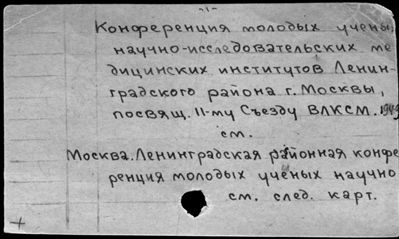 -1-
Конференция молодых учены
научно-исследовательских ме
дицинских институтов Ленин-
градского района г. Москвы,
посвящ. 11-му Съезду ВЛКСМ. 1949
см.
Москва. Ленинградская районная конфе
ренция молодых ученых научно
см. след. карт.